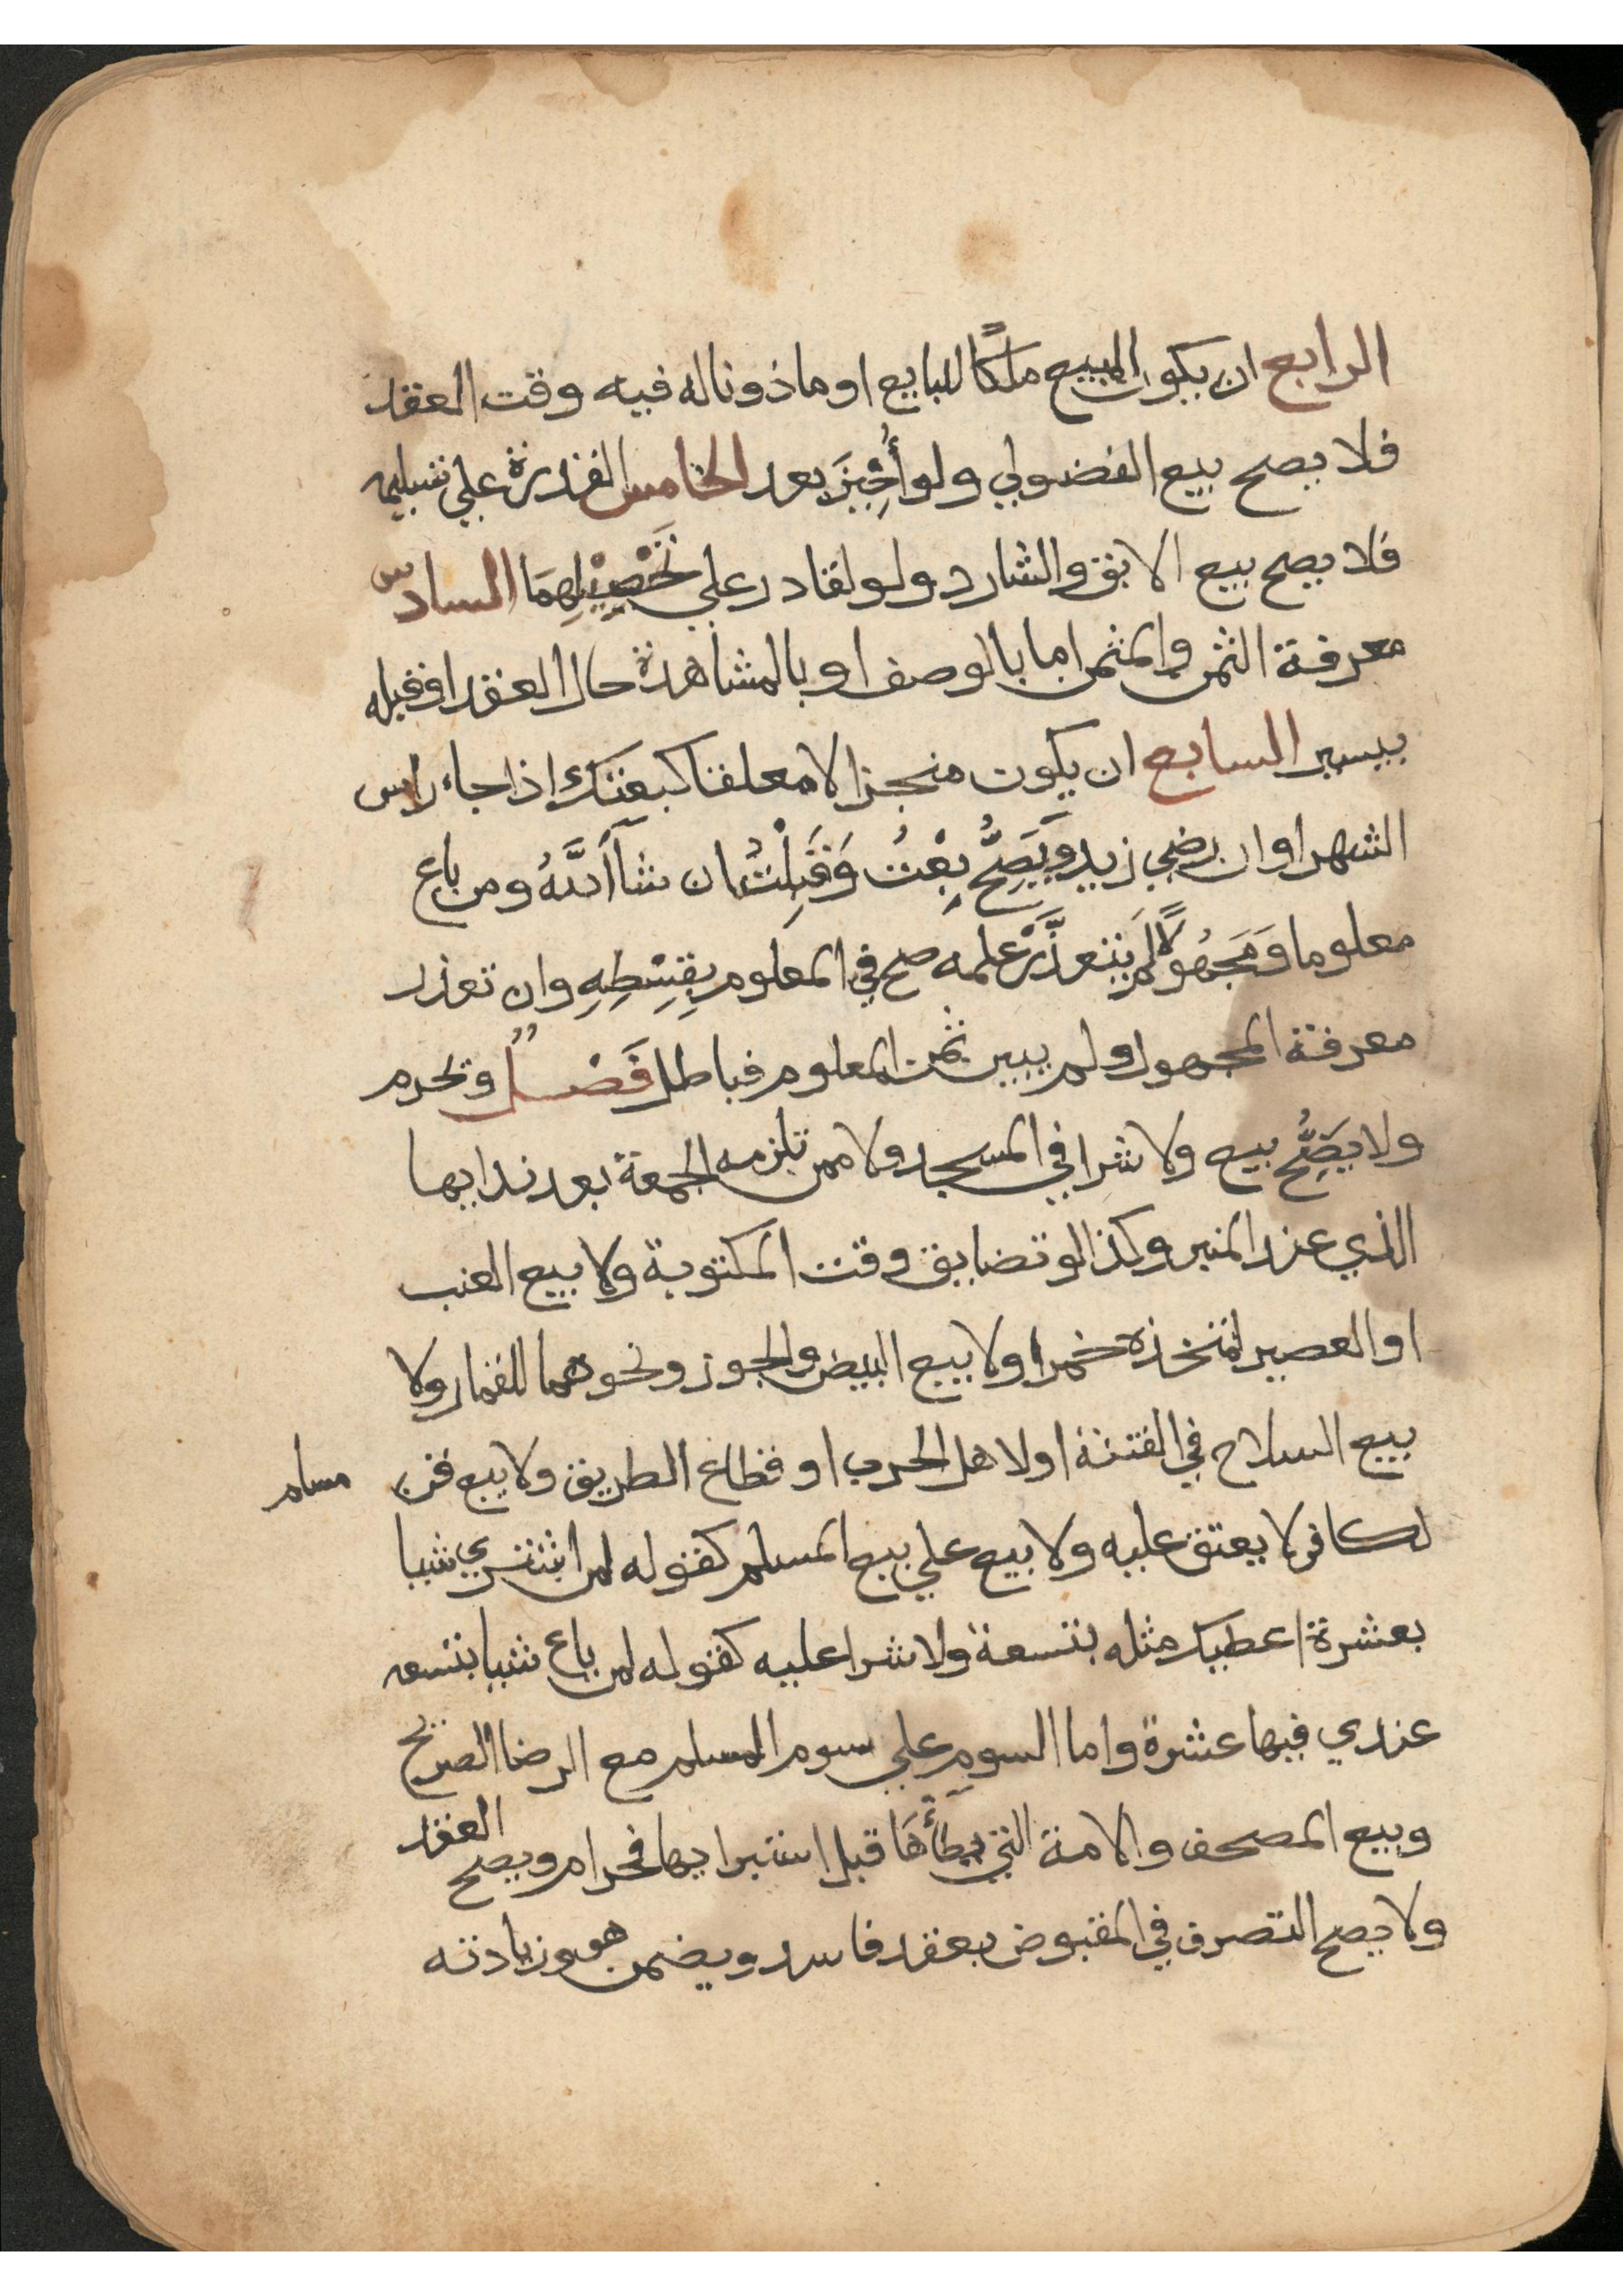 الرابع ان يكون المبيع ملكًا للبايع او ماذونا له فيه وقت العقد
فلا يصح بيع الفضولي ولو أُجِيْزَ بعد الخامس القدرة علي تسليمه
فلا يصح بيع الابق والشارد ولو لقادر علي تَحْصِيْلِهِمَا السادس
معرفة الثمن والمثمن اما بالوصف او بالمشاهدة حال العقد او قبله
بيسير السابع ان يكون منجزا لا معلقا كبعتك اذا جاء راس
الشهر او ان رضي زيد وَيَصِحُّ بِعْتُ وَقَبِلْتُ ان شآ اَللَّهُ ومن باع
معلوما وَمَجْهُولًا لم يتعذَّرْ علمه صح في المعلوم بِقِسْطِهِ وان تعذر
معرفة المجهول ولم يبين ثمن المعلوم فباطل فَصْلٌ وتحرم
ولا يَصِحُّ بيع ولا شرا في المسجد ولا ممن تلزمه الجمعة بعد ندايها
الذي عند المنبر وكذا لو تضايق وقت المكتوبة ولا بيع العنب
او العصير لمتخذه خمرا ولا بيع البيض والجوز ونحوهما للقمار ولا
بيع السلاح في الفتنة او لاهل الحرب او قطاع الطريق ولا بيع قن مسلم
لكافر لا يعتق عليه ولا بيع علي بيع المسلم كقوله لمن اشتري شيا
بعشرة اعطيك مثله بتسعة ولا شرا عليه كقوله لمن باع شيا بتسعه
عندي فيها عشرة واما السوم علي سوم المسلم مع الرضا الصريح
وبيع المصحف والامة التي يَطَأُهَا قبل استبرايها فحرام ويصح العقد
ولا يصح التصرف في المقبوض بعقد فاسد ويضمن هو وزيادته